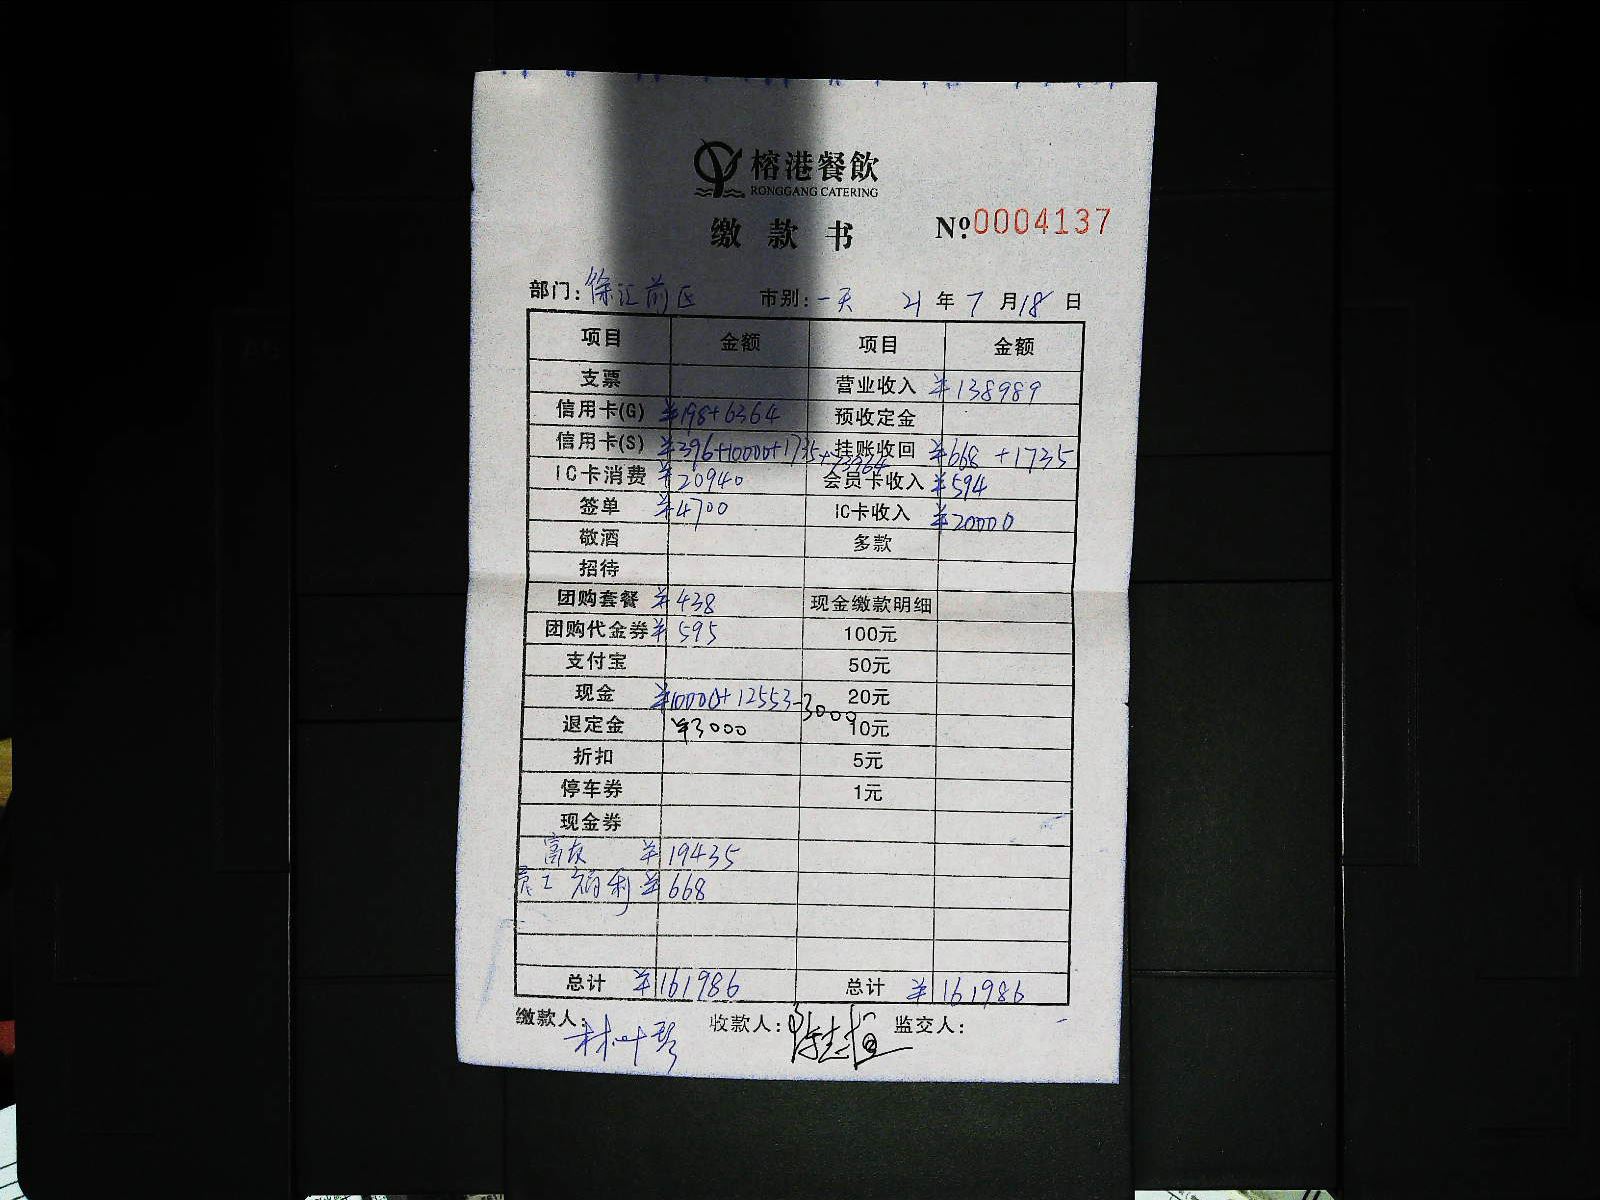 榕港餐飲
RONGGANG CATERING
缴款书 Nº0004137
部门:徐汇前区 市别:一天 21年7月18日
项目 金额 项目 金额
支票 营业收入 ¥138989
信用卡(G) ¥198+6364 预收定金
信用卡(S) ¥396+10000+1735+73964 挂账收回 ¥668 +1735
IC卡消费 ¥20940 会员卡收入 ¥594
签单 ¥4700 IC卡收入 ¥20000
敬酒 多款
招待
团购套餐 ¥438 现金缴款明细
团购代金券 ¥595 100元
支付宝 50元
现金 ¥10000+12553-3000 20元
退定金 ¥3000 10元
折扣 5元
停车券 1元
现金券
富友 ¥19435
员工福利 ¥668
总计 ¥161986 总计 ¥161986
缴款人:林叶琴 收款人: 监交人: